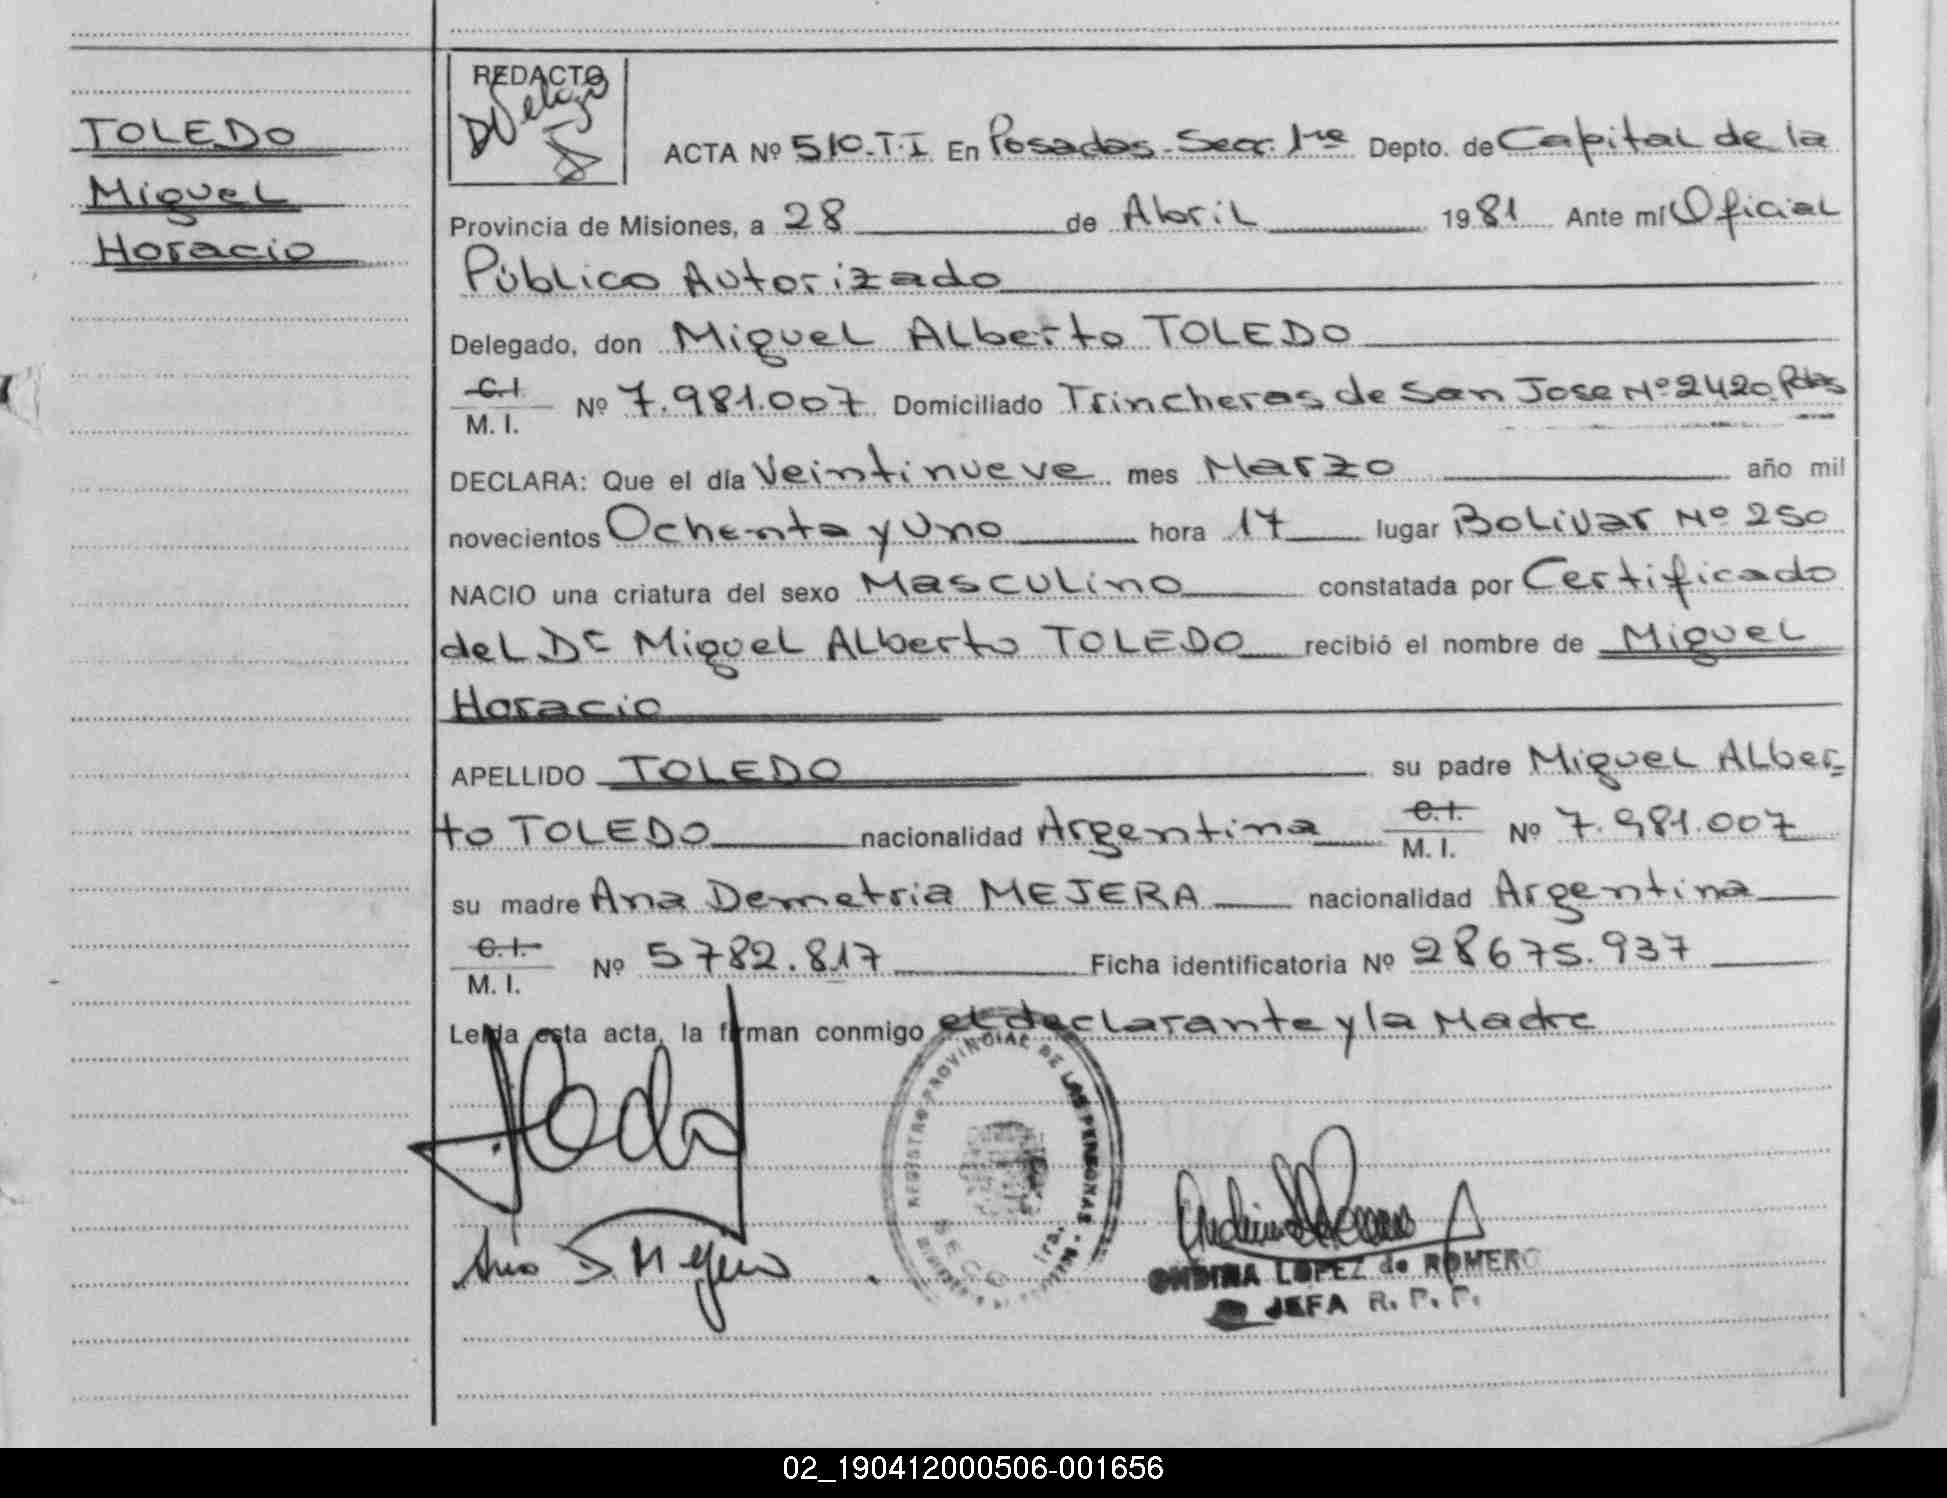 TOLEDO
Miguel
Horacio
REDACTO
ACTA Nº 510.T.I En Posadas. Secc. 1ra Depto. de Capital de la
Provincia de Misiones, a 28 de Abril 1981 Ante mí Oficial
Público Autorizado
Delegado, don Miguel Alberto TOLEDO
C.I. M. I. Nº 7.981.007 Domiciliado Trincheras de San Jose Nº 2420. Pdas
DECLARA: Que el día Veintinueve mes Marzo año mil
novecientos Ochenta y Uno hora 17 lugar Bolivar Nº 250
NACIO una criatura del sexo Masculino constatada por Certificado
del Dr Miguel Alberto TOLEDO recibió el nombre de Miguel
Horacio
APELLIDO TOLEDO su padre Miguel Alber-
to TOLEDO nacionalidad Argentina C.I. M. I. Nº 7.981.007
su madre Ana Demetria MEJERA nacionalidad Argentina
C.I. M. I. Nº 5782.817 Ficha identificatoria Nº 28675.937
Leída esta acta, la firman conmigo el declarante y la Madre
REGISTRO PROVINCIAL DE LAS PERSONAS
SECC 1ra.
Ana D Mejera
ONDINA LOPEZ de ROMERO
JEFA R. P. P.
02_190412000506-001656